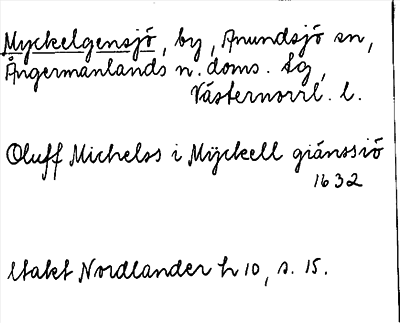 Myckelgensjö, by, Anundsjö sn,
Ångermanlands n. doms. tg,
Västernorrl. l.
Oluff Michelss i Mÿckell giänssiö
1632
Utakt Nordlander h 10, s. 15.